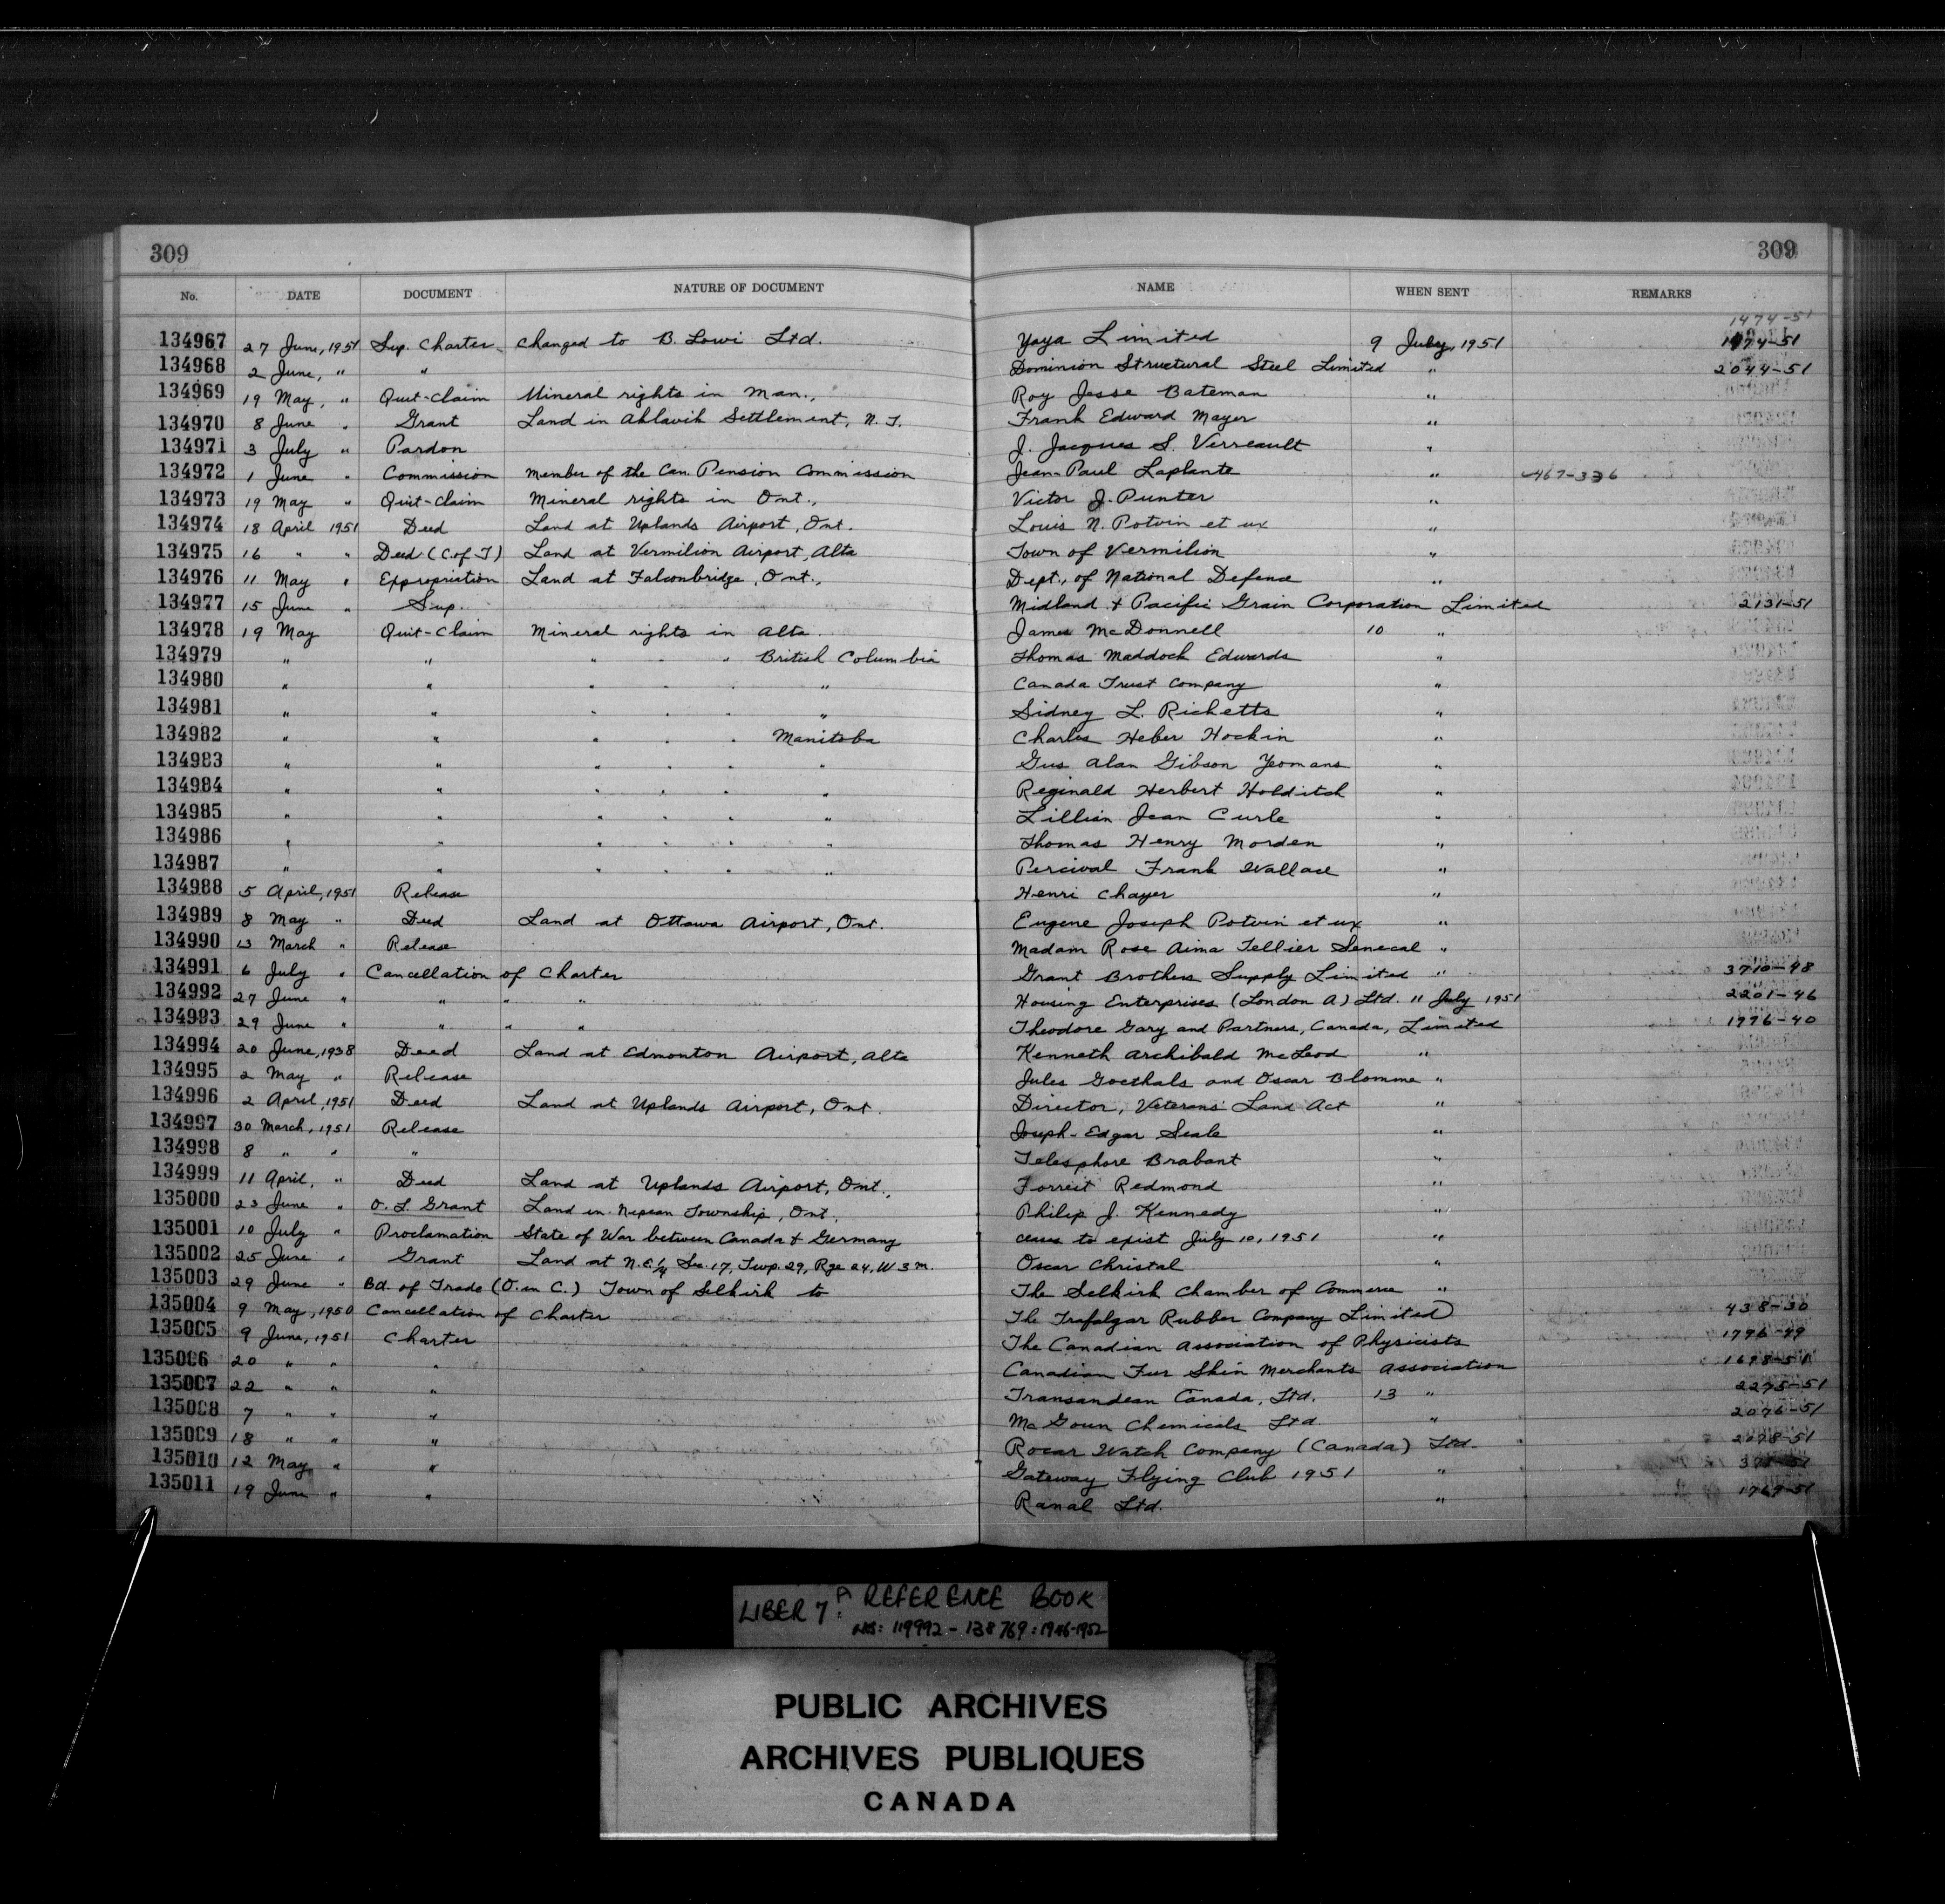 309 309
No. DATE DOCUMENT NATURE OF DOCUMENT NAME WHEN SENT REMARKS
1474-51
134967 27 June, 1951 Sup. Charter changed to B. Lowi Ltd. Yaya Limited 9 July, 1951 1474-51
134968 2 June, " " Dominion Structural Steel Limited " 2044-51
134969 19 May, " Quit-Claim Mineral rights in Man., Roy Jesse Bateman "
134970 8 June " Grant Land in Aklavik Settlement, N. T. Frank Edward Mayer "
134971 3 July " Pardon J. Jacques S. Verreault "
134972 1 June " Commission Member of the Can. Pension Commission Jean-Paul Laplante " 467-336
134973 19 May " Quit-claim Mineral rights in Ont., Victor J. Punter "
134974 18 April 1951 Deed Land at Uplands Airport, Ont. Louis N. Potvin et ux "
134975 16 " " Deed (C. of T) Land at Vermilion Airport, Alta Town of Vermilion "
134976 11 May " Expropriation Land at Falconbridge, Ont., Dept., of National Defence "
134977 15 June " Sup. Midland & Pacific Grain Corporation Limited 2131-51
134978 19 May Quit-Claim Mineral rights in Alta. James McDonnell 10 "
134979 " " " " " British Columbia Thomas Maddock Edwards "
134980 " " " " " " Canada Trust Company "
134981 " " " " " " Sidney L. Ricketts "
134982 " " " " " Manitoba Charles Heber Hockin "
134983 " " " " " " Gus Alan Gibson Yeomans "
134984 " " " " " " Reginald Herbert Holditch "
134985 " " " " " " Lillian Jean Curle "
134986 " " " " " " Thomas Henry Morden "
134987 " " " " " " Percival Frank Wallace "
134988 5 April, 1951 Release Henri Chayer "
134989 8 May " Deed Land at Ottawa Airport, Ont. Eugene Joseph Potvin et ux "
134990 13 March " Release Madam Rose Aima Tellier Senecal "
134991 6 July " Cancellation of Charter Grant Brothers Supply Limited " 3710-48
134992 27 June " " " " Housing Enterprises (London A) Ltd. 11 July 1951 2201-46
134993 29 June " " " " Theodore Gary and Partners, Canada, Limited 1976-40
134994 20 June, 1938 Deed Land at Edmonton Airport, Alta Kenneth Archibald McLeod "
134995 2 May " Release Jules Goethals and Oscar Blomme "
134996 2 April, 1951 Deed Land at Uplands Airport, Ont. Director, Veterans' Land Act "
134997 30 March, 1951 Release Joseph-Edgar Seale "
134998 8 " " " Telesphore Brabant "
134999 11 April, " Deed Land at Uplands Airport, Ont., Forrest Redmond "
135000 23 June " O. L. Grant Land in Nepean Township, Ont. Philip J. Kennedy "
135001 10 July " Proclamation State of War between Canada & Germany ceases to exist July 10, 1951 "
135002 25 June " Grant Land at N.E.1/4 Sec. 17, Twp. 29, Rge 24, W 3 M. Oscar Christal "
135003 29 June " Bd. of Trade (O. in C.) Town of Selkirk to The Selkirk Chamber of Commerce "
135004 9 May, 1950 Cancellation of Charter The Trafalgar Rubber Company Limited 438-30
135005 9 June, 1951 Charter The Canadian Association of Physicists 1796-49
135006 20 " " " Canadian Fur Skin Merchants Association 1698-51
135007 22 " " " Transandean Canada, Ltd. 13 " 2275-51
135008 7 " " " McGoun Chemicals Ltd. " 2076-51
135009 18 " " " Rocar Watch Company (Canada) Ltd. 2098-51
135010 12 May " " Gateway Flying Club 1951 "
135011 19 June " " Ranal Ltd. " 1769-51
LIBER 7A: REFERENCE BOOK
NOS: 119992 - 138769: 1946-1952
PUBLIC ARCHIVES
ARCHIVES PUBLIQUES
CANADA